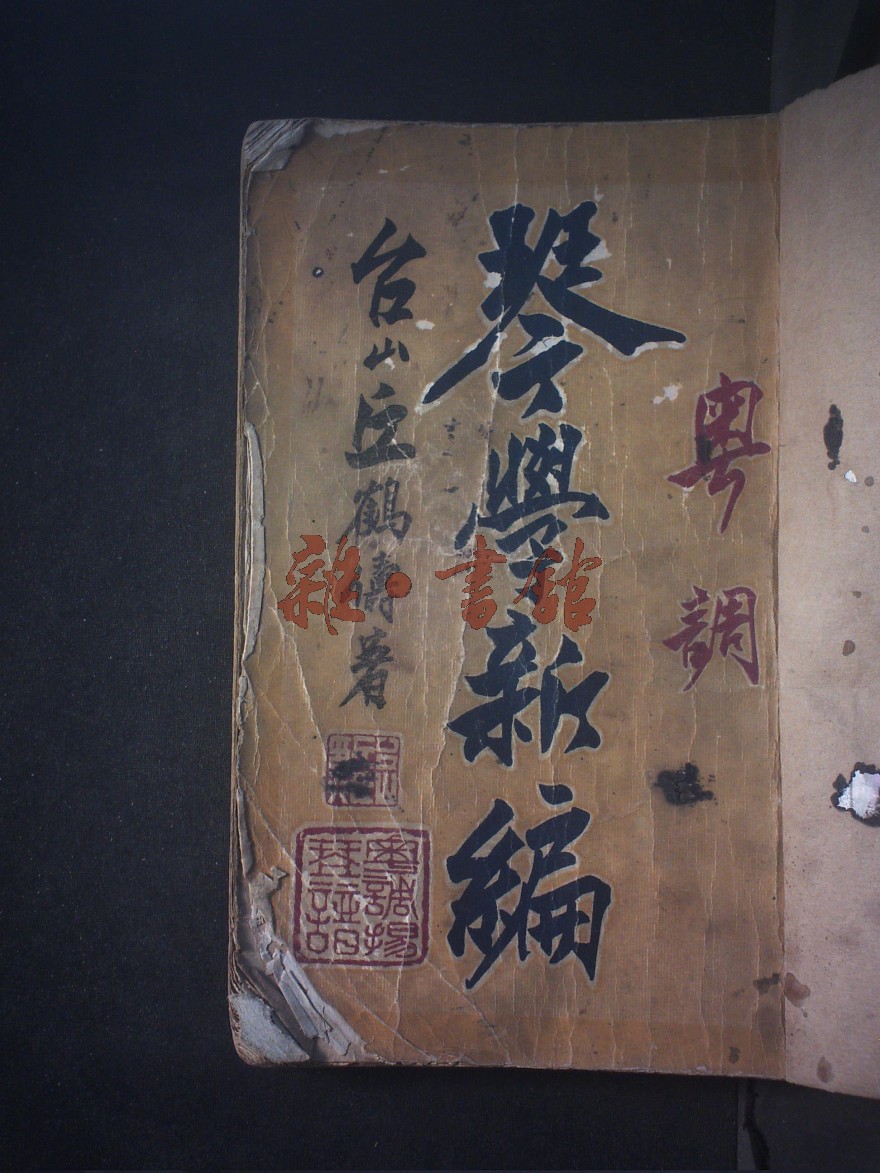 粵調
琴學新編
台山丘鶴儔著
粵調揚琴譜
雜·書館